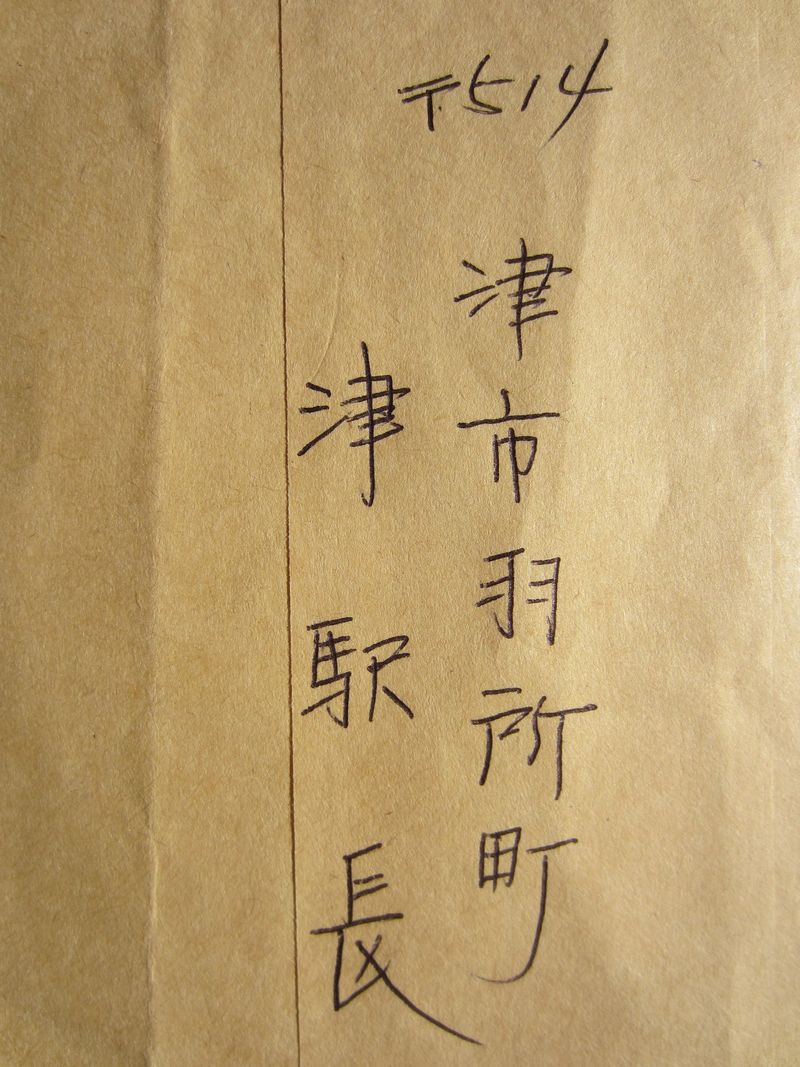 〒514
津市羽所町
津駅長